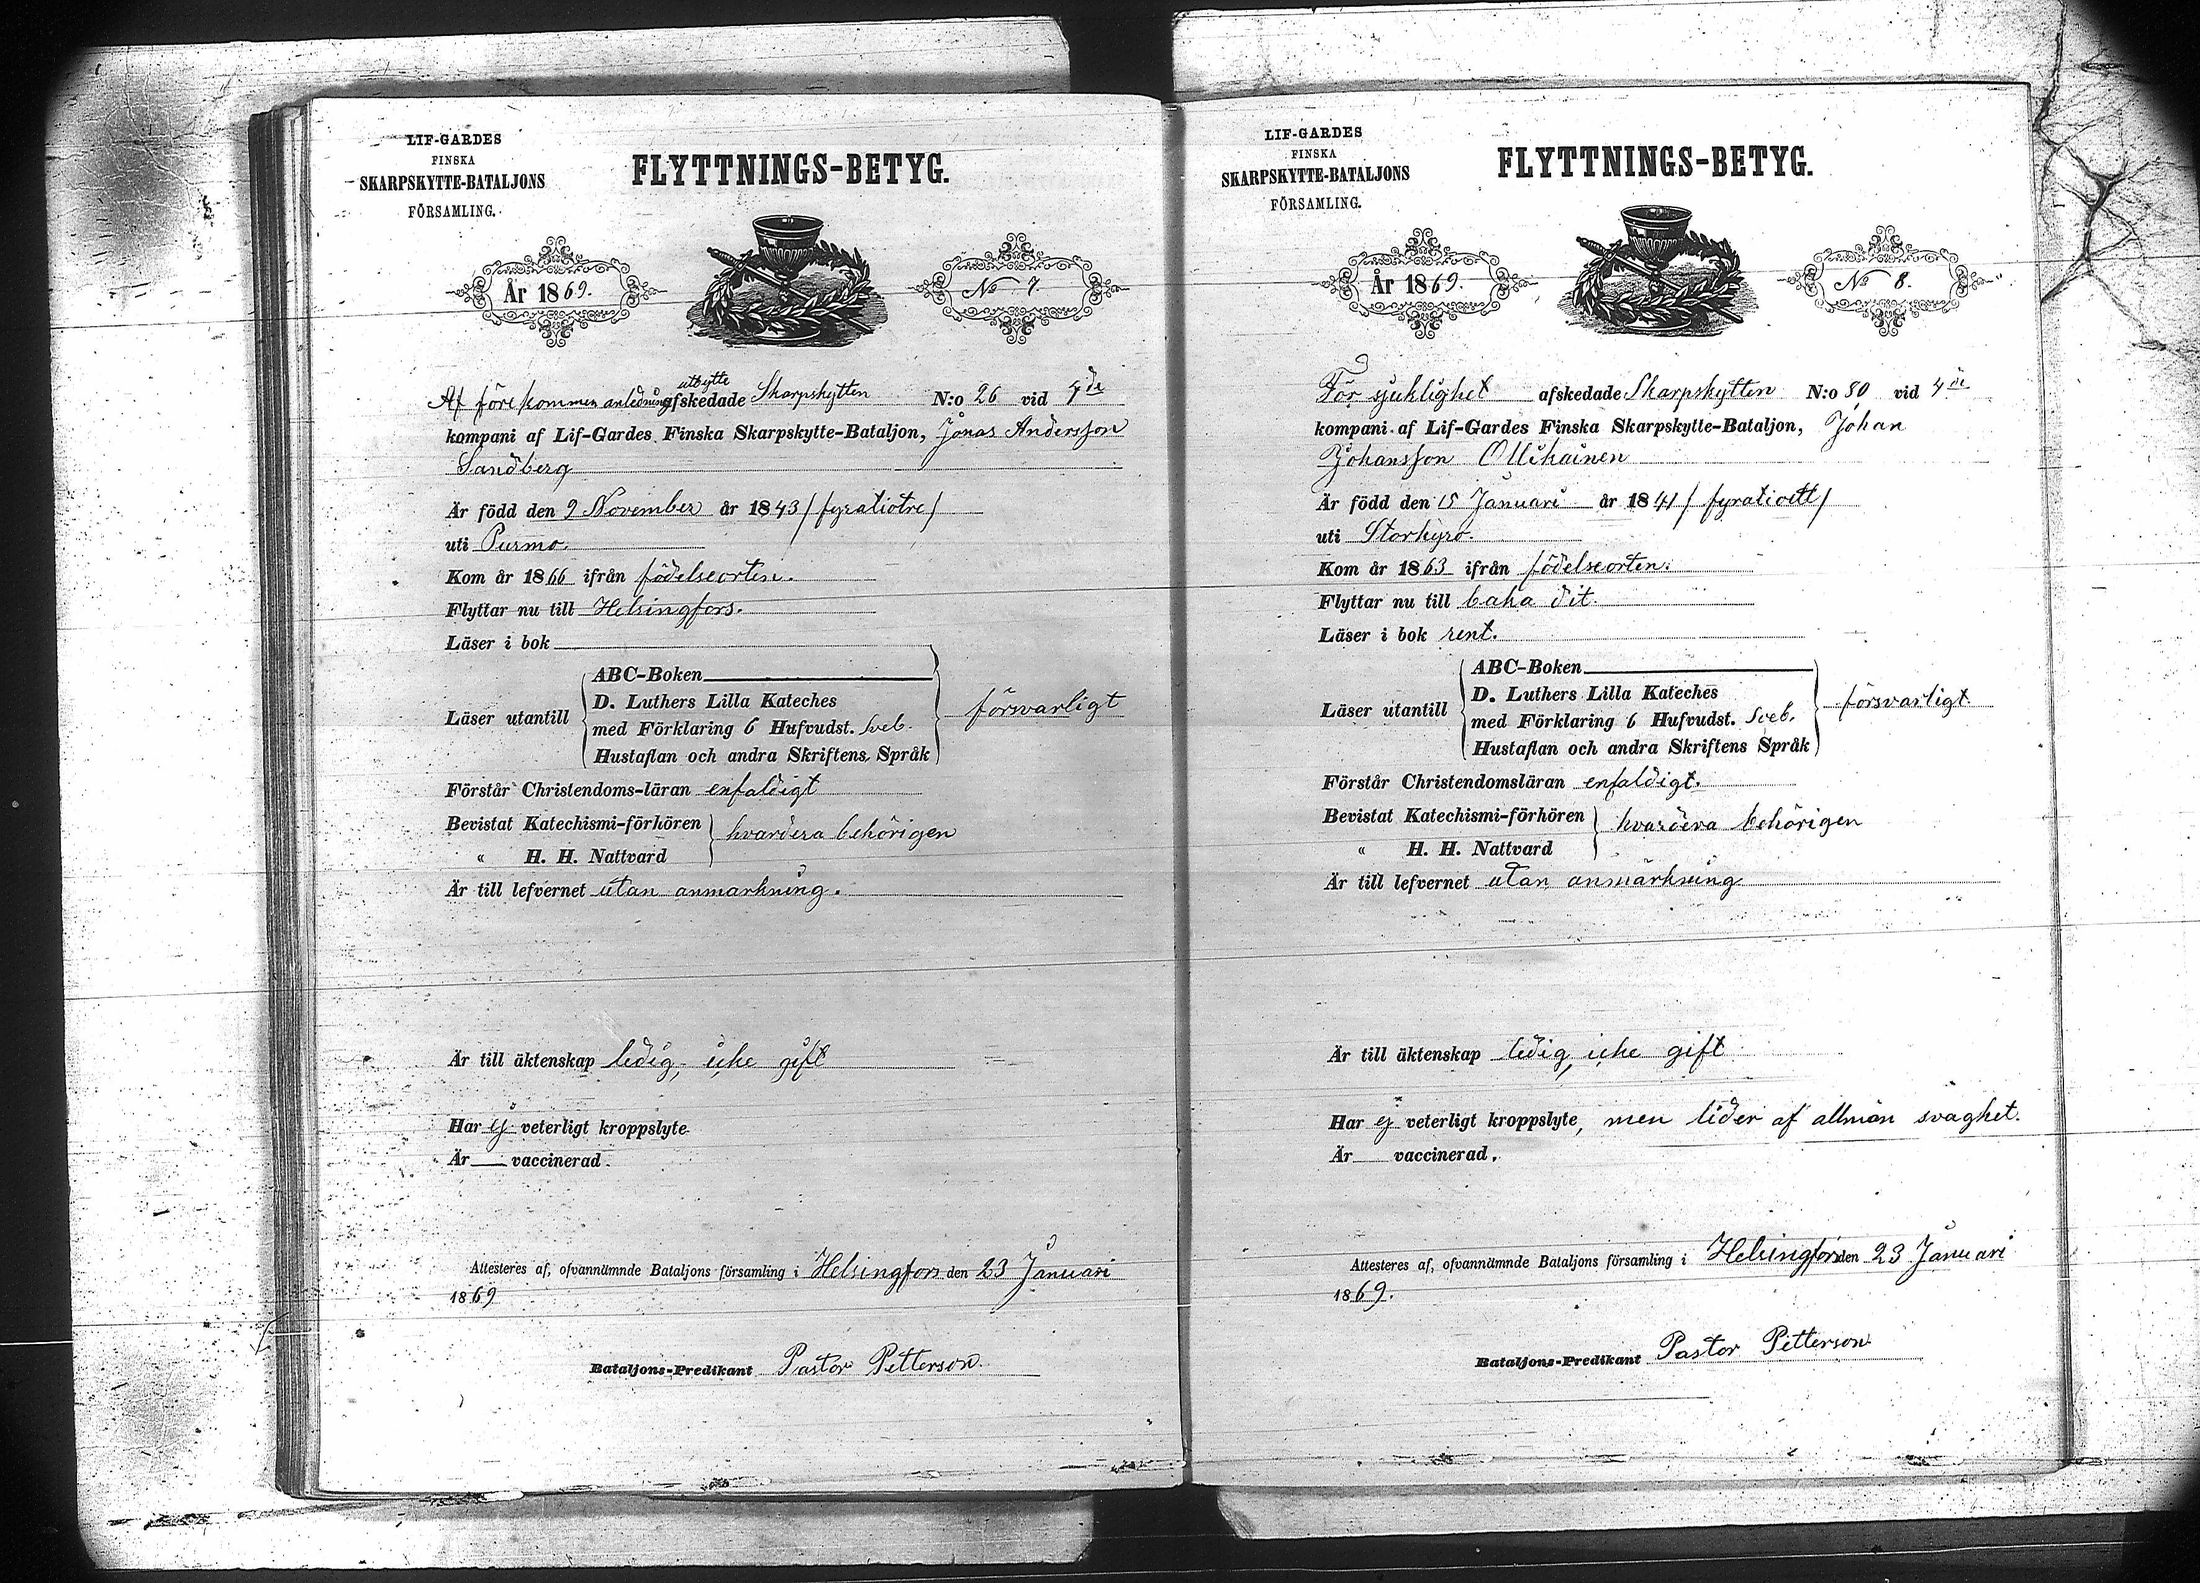 LIF-GARDES
FINSKA
SKARPSKYTTE-BATALJONS
FÖRSAMLING.
FLYTTNINGS-BETYG.
År 1869.
No 7.
utbytte
Af förekommen anledning afskedade Skarpskytten N:o 26 vid 4de
kompani af Lif-Gardes Finska Skarpskytte-Bataljon, Jonas Andersson
Sandberg
Är född den 9 November år 1843 /fyratiotre/
uti Purmo.
Kom år 1866 ifrån födelseorten.
Flyttar nu till Helsingfors.
Läser i bok
Läser utantill
ABC-Boken
D. Luthers Lilla Kateches
med Förklaring 6 Hufvudst. Sveb.
Hustaflan och andra Skriftens Språk
försvarligt
Förstår Christendoms-läran enfaldigt
Bevistat Katechismi-förhören
" H. H. Nattvard
hvardera behörigen
Är till lefvernet utan anmärkning.
Är till äktenskap ledig, icke gift
Har ej veterligt kroppslyte
Är — vaccinerad.
Attesteres af, ofvannämnde Bataljons församling i Helsingfors den 23 Januari
1869
Bataljons-Predikant Pastor Petterson.
LIF-GARDES
FINSKA
SKARPSKYTTE-BATALJONS
FÖRSAMLING.
FLYTTNINGS-BETYG.
År 1869.
No 8.
För sjuklighet afskedade Skarpskytten N:o 80 vid 4de
kompani af Lif-Gardes Finska Skarpskytte-Bataljon, Johan
Johansson Ollikainen
Är född den 15 Januari år 1841 /fyratioett/
uti Storkyro.
Kom år 1863 ifrån födelseorten.
Flyttar nu till baka dit.
Läser i bok rent.
Läser utantill
ABC-Boken
D. Luthers Lilla Kateches
med Förklaring 6 Hufvudst. Sveb.
Hustaflan och andra Skriftens Språk
försvarligt.
Förstår Christendomsläran enfaldigt.
Bevistat Katechismi-förhören
" H. H. Nattvard
hvardera behörigen
Är till lefvernet utan anmärkning
Är till äktenskap ledig, icke gift
Har ej veterligt kroppslyte, men lider af allmän svaghet.
Är vaccinerad.
Attesteres af, ofvannämnde Bataljons församling i Helsingfors den 23 Januari
1869.
Bataljons-Predikant Pastor Petterson